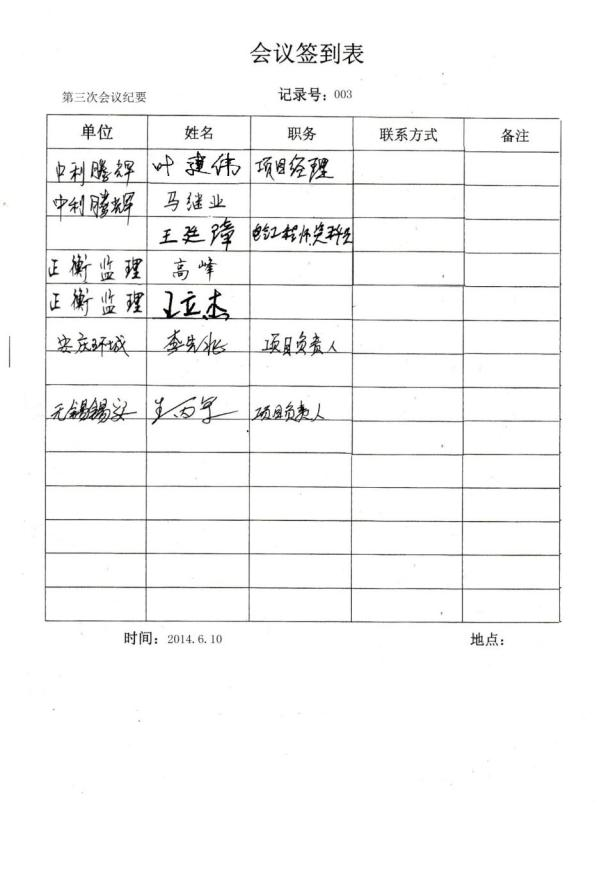 会议签到表
第三次会议纪要 记录号：003
单位 姓名 职务 联系方式 备注
中利腾辉 叶建伟 项目经理
中利腾辉 马继业
王廷璋
正衡监理 高峰
正衡监理 王立杰
安庆环城 项目负责人
无锡锡 项目负责人
时间：2014.6.10 地点：